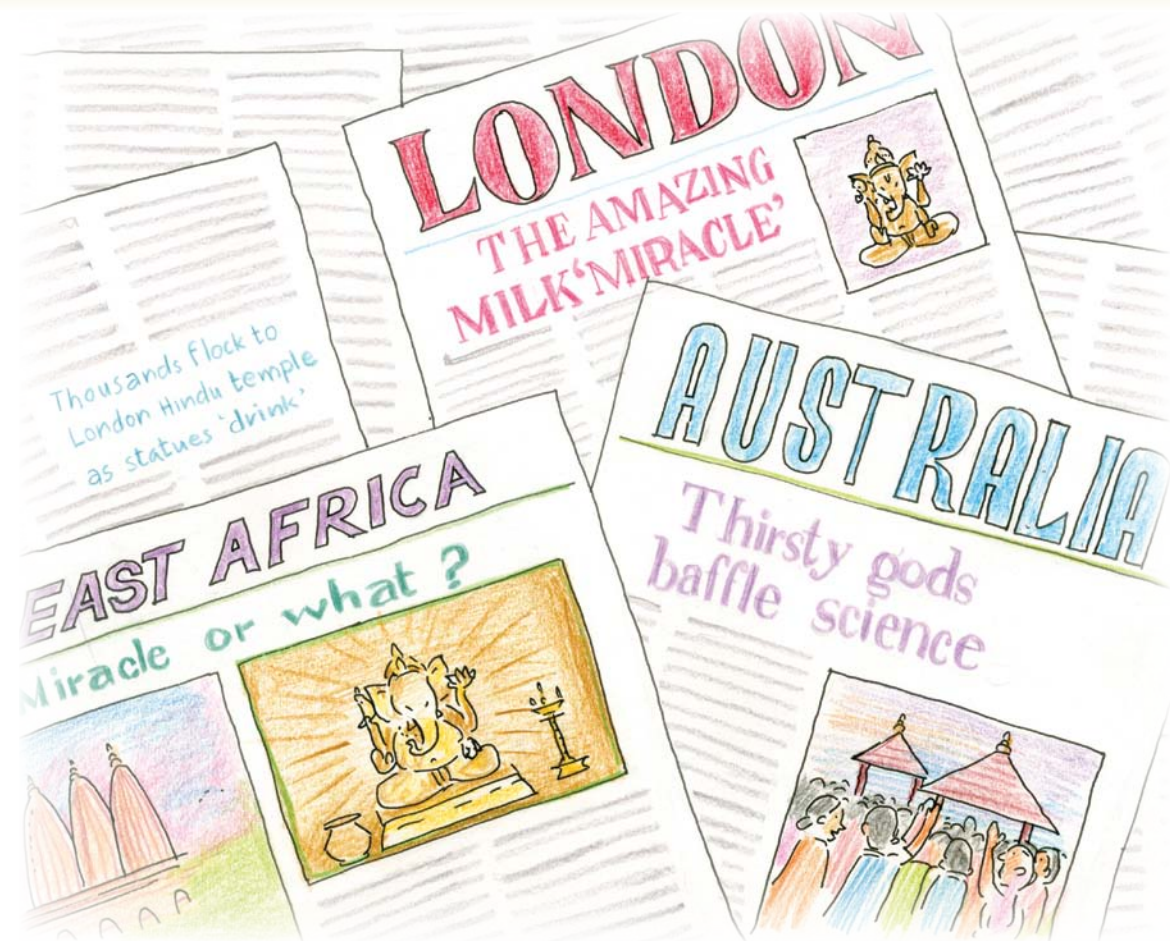 LONDON
THE AMAZING
MILK 'MIRACLE'
Thousands flock to
London Hindu temple
as statues 'drink'
AUSTRALIA
Thirsty gods
baffle science
EAST AFRICA
Miracle or what ?